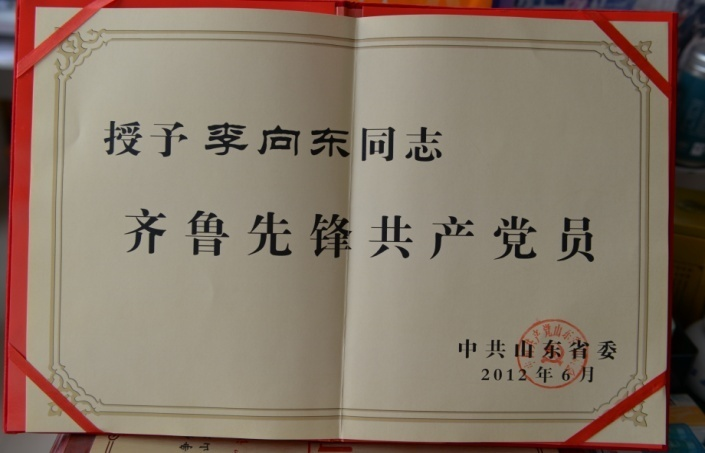 授予李向东同志
齐鲁先锋共产党员
中共山东省委
2012年6月